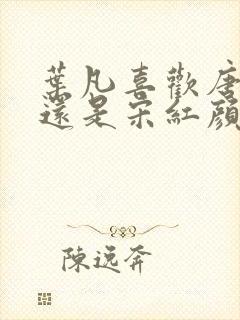 葉凡喜歡唐
還是宋紅顏
陳遠奔